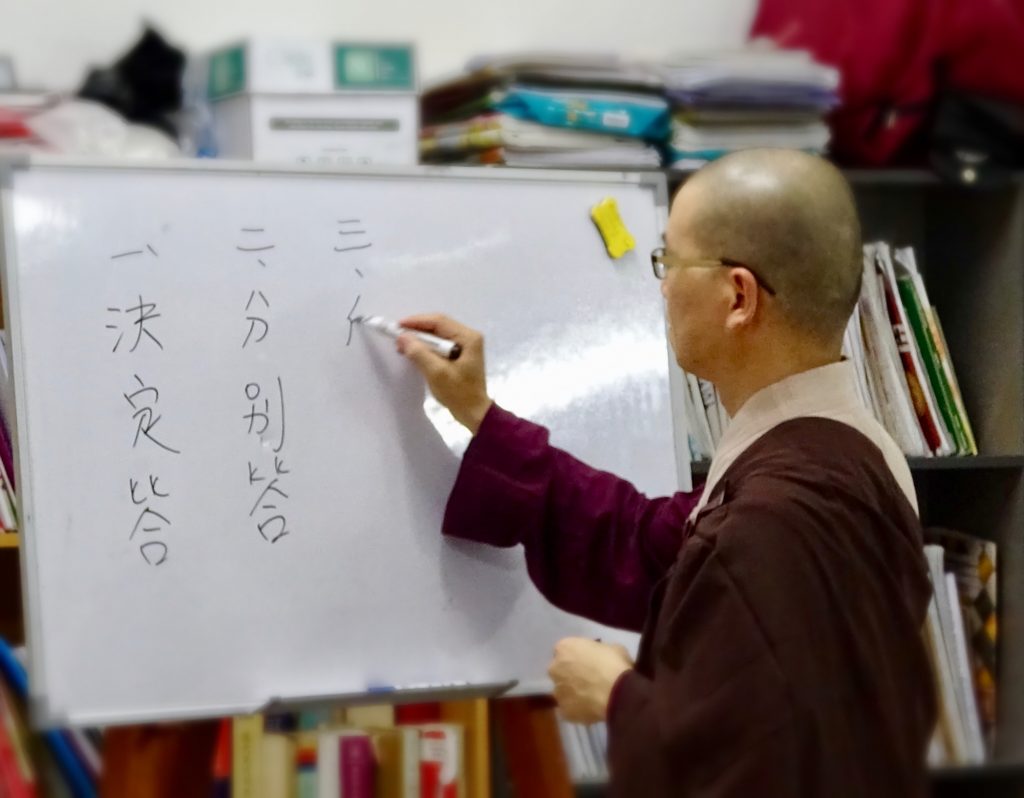 一、決定答
二、分別答
三、